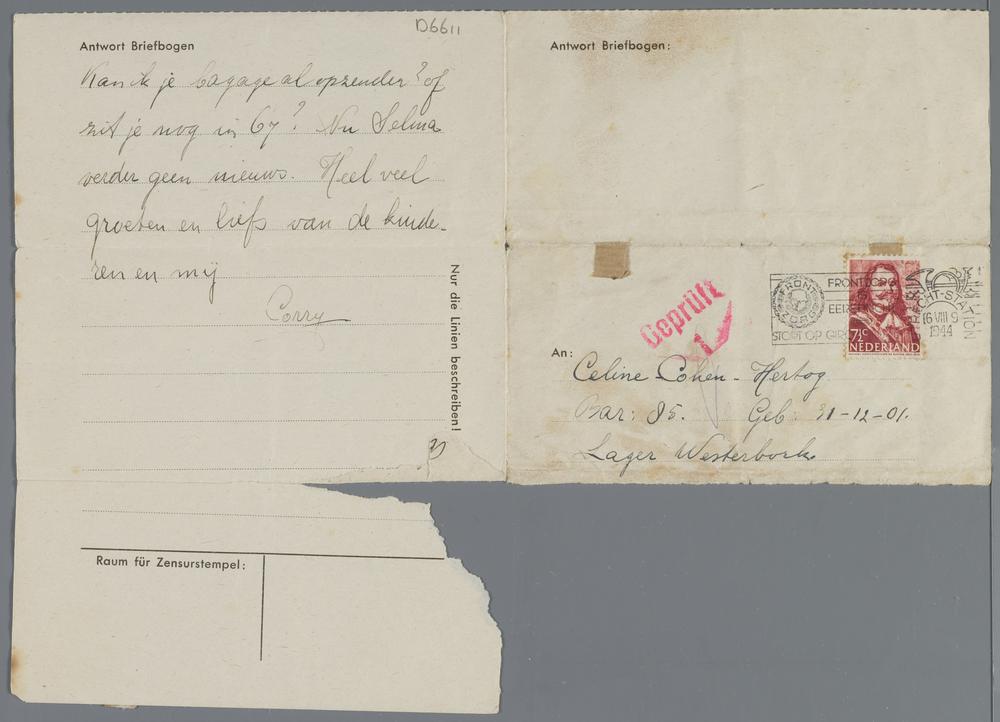 D6611
Antwort Briefbogen
Kan ik je bagage al opzenden? of
zit je nog in 67? Nu Selma
verder geen nieuws. Heel veel
groeten en liefs van de kinde-
ren en mij
Corry
Nur die Linien beschreiben!
Raum für Zensurstempel:
Antwort Briefbogen:
Geprüft
1
FRONT
ZORG
FRONTZORG
STORT OP GIRO
16 VIII 9
1944
7½c
NEDERLAND
An:
Celine Cohen-Hertog
Bar: 85. Geb: 31-12-01.
Lager Westerbork